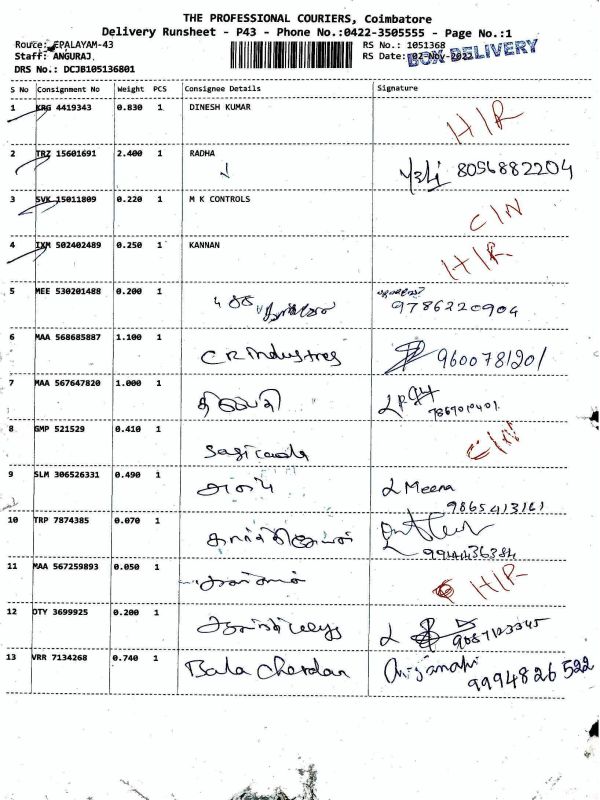 THE PROFESSIONAL COURIERS, Coimbatore
Delivery Runsheet - P43 - Phone No.:0422-3505555 - Page No.:1
Route: EPALAYAM-43 RS No.: 1051368
Staff: ANGURAJ RS Date: 02-Nov-2022 BOX DELIVERY
DRS No.: DCJB105136801
S No Consignment No Weight PCS Consignee Details Signature
1 KRG 4419343 0.830 1 DINESH KUMAR H/R
2 TRZ 15601691 2.400 1 RADHA 8056882204
3 SVK 15011809 0.220 1 M K CONTROLS C/N
4 IXM 502402489 0.250 1 KANNAN H/R
5 MEE 530201488 0.200 1 9786220904
6 MAA 568685887 1.100 1 CR Industres 9600781201
7 MAA 567647820 1.000 1 திருப்பதி
8 GMP 521529 0.410 1 C/N
9 SLM 306526331 0.490 1 Meena
9865413161
10 TRP 7874385 0.070 1 9944436384
11 MAA 567259893 0.050 1 H/R
12 OTY 3699925 0.200 1 9087123345
13 VRR 7134268 0.740 1 Bala
9994826522